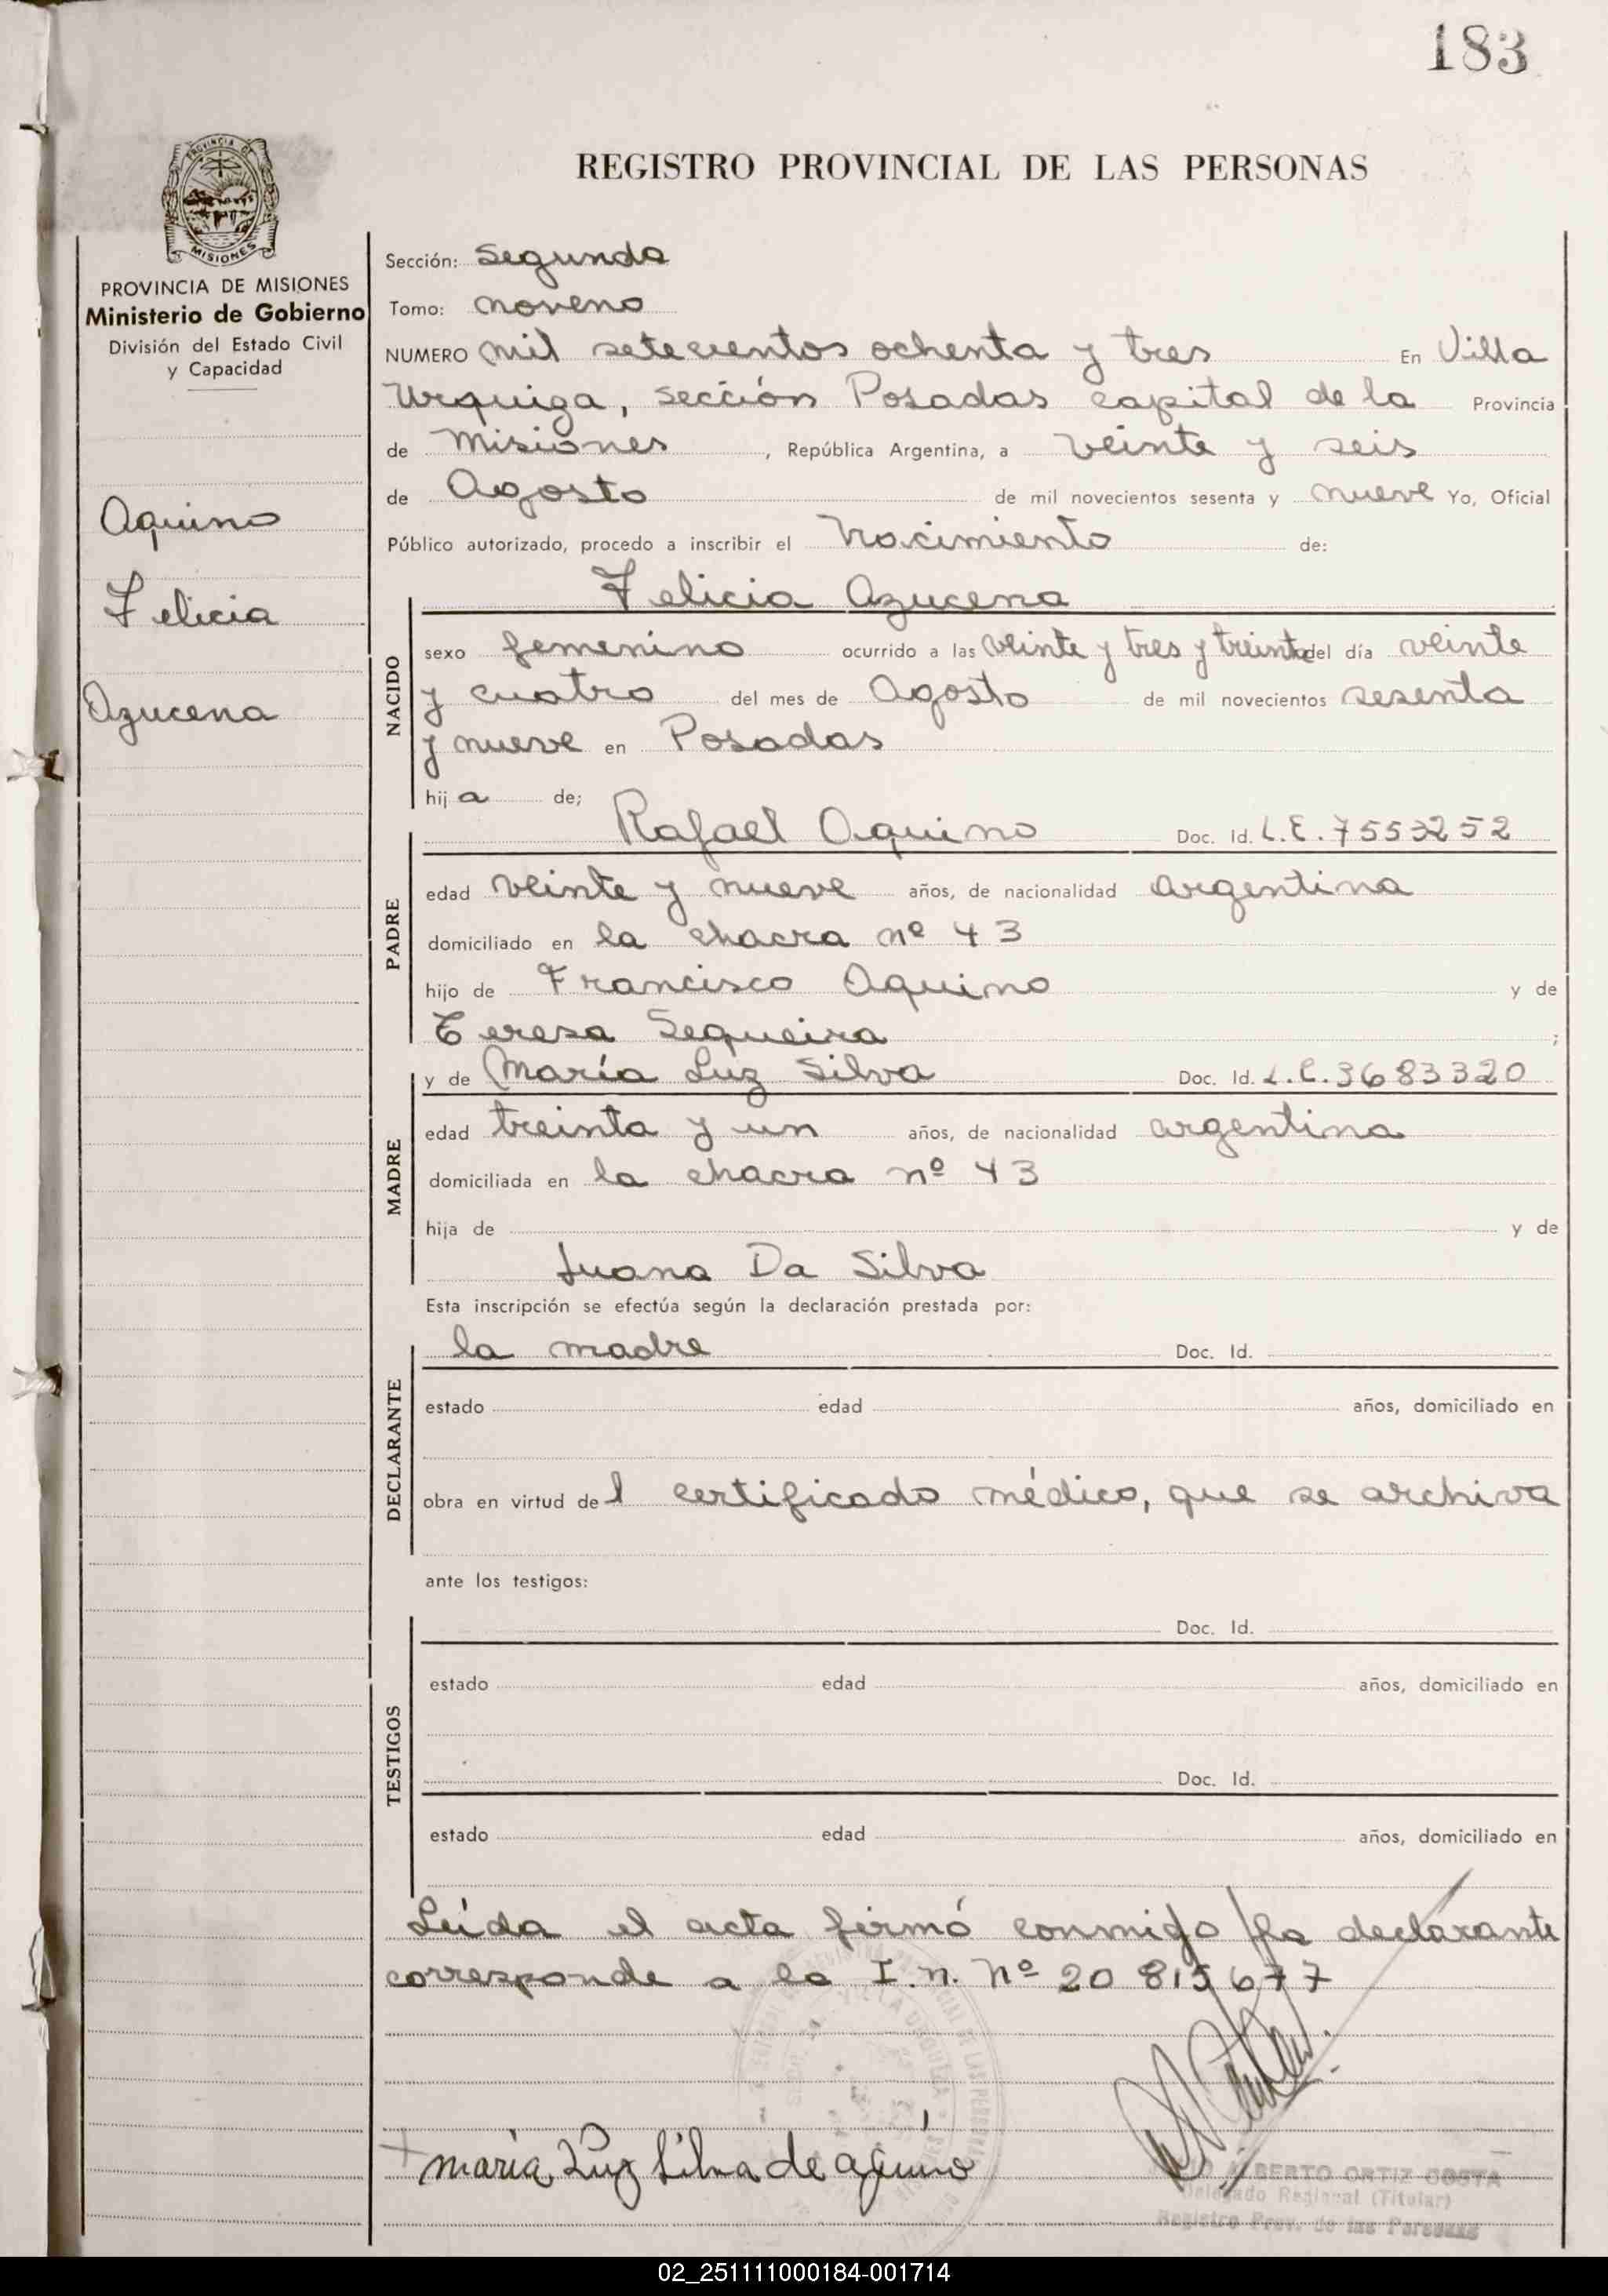 183
REGISTRO PROVINCIAL DE LAS PERSONAS
PROVINCIA DE
MISIONES
PROVINCIA DE MISIONES
Ministerio de Gobierno
División del Estado Civil
y Capacidad
Aquino
Felicia
Azucena
Sección: Segunda
Tomo: noveno
NUMERO mil setecientos ochenta y tres En Villa
Urquiza, sección Posadas capital de la Provincia
de Misiones, República Argentina, a veinte y seis
de Agosto de mil novecientos sesenta y nueve Yo, Oficial
Público autorizado, procedo a inscribir el Nacimiento de:
NACIDO
Felicia Azucena
sexo femenino ocurrido a las veinte y tres y treinta del día veinte
y cuatro del mes de Agosto de mil novecientos sesenta
y nueve en Posadas
hija de;
PADRE
Rafael Aquino Doc. Id. L.E. 7553252
edad veinte y nueve años, de nacionalidad argentina
domiciliado en la chacra nº 43
hijo de Francisco Aquino y de
Teresa Sequeira ;
MADRE
y de María Luz Silva Doc. Id. L.C. 3683320
edad treinta y un años, de nacionalidad argentina
domiciliada en la chacra nº 43
hija de y de
Juana Da Silva
Esta inscripción se efectúa según la declaración prestada por:
DECLARANTE
la madre Doc. Id.
estado edad años, domiciliado en
obra en virtud del certificado médico, que se archiva
ante los testigos:
TESTIGOS
Doc. Id.
estado edad años, domiciliado en
Doc. Id.
estado edad años, domiciliado en
Leída el acta firmó conmigo la declarante
corresponde a la I.n. Nº 20 815677
maría Luz Silva de aquino
ALBERTO ORTIZ COSTA
Delegado Regional (Titular)
Registro Prov. de las Personas
02_251111000184-001714